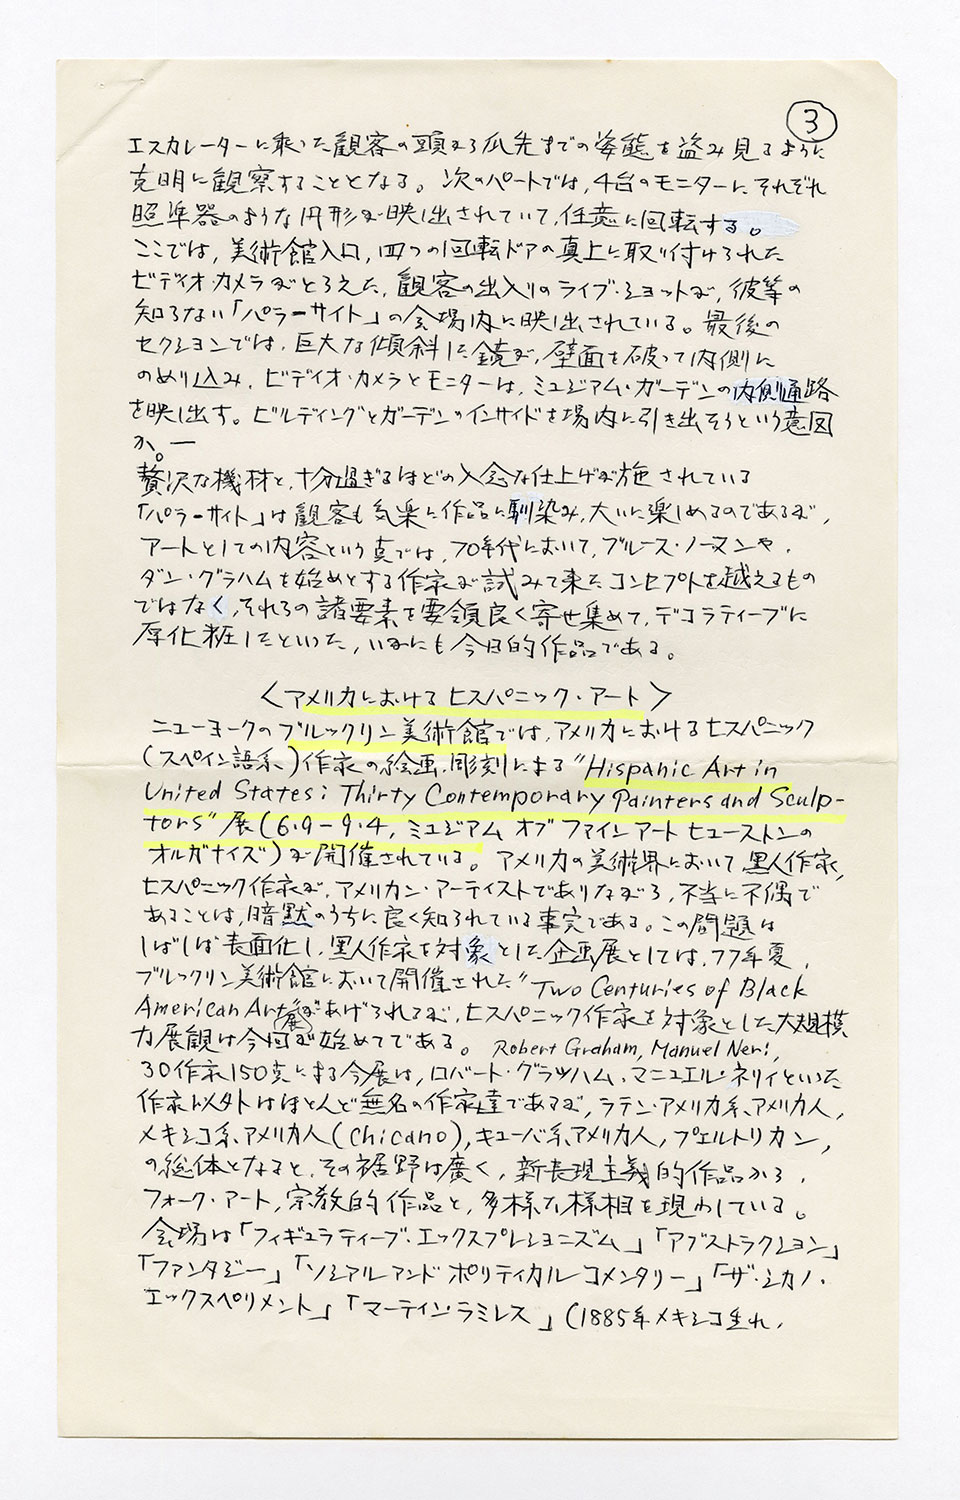 3
エスカレーターに乗った観客の頭から爪先までの姿態を盗み見るように
克明に観察することとなる。次のパートでは,4台のモニターにそれぞれ
照準器のような円形が映し出されていて,任意に回転する。
ここでは,美術館入口,四つの回転ドアの真上に取り付けられた
ビデイオ・カメラがとらえた,観客の出入りのライブ・ショットが,彼等の
知らない「パラーサイト」の会場内に映し出されている。最後の
セクションでは,巨大な傾斜した鏡が,壁面を破って内側に
のめり込み,ビディオ・カメラとモニターは,ミュジアム・ガーデンの内側通路
を映し出す。ビルディングとガーデンのインサイドを場内に引き出そうという意図
か。ー
贅沢な機材と,十分過ぎるほどの入念な仕上げが施されている
「パラーサイト」は観客も気楽に作品に馴染み,大いに楽しめるのであるが,
アートとしての内容という点では,70年代において,ブルース・ノーマンや,
ダン・グラハムを始めとする作家が試みて来たコンセプトを越えるもの
ではなく,それらの諸要素を要領良く寄せ集めて,デコラティーブに
厚化粧したといった,いかにも今日的作品である。
〈アメリカにおけるヒスパニック・アート〉
ニューヨークのブルックリン美術館では,アメリカにおけるヒスパニック
(スペイン語系)作家の絵画,彫刻による"Hispanic Art in
United States: Thirty Contemporary Painters and Sculp-
tors"展(6・9-9・4,ミュジアム オブ ファインアート ヒューストンの
オルガナイズ)が開催されている。アメリカの美術界において,黒人作家,
ヒスパニック作家が,アメリカン・アーティストでありながら,不当に不偶で
あることは,暗黙のうちに良く知られている事実である。この問題は
しばしば表面化し,黒人作家を対象とした企画展としては,77年夏,
ブルックリン美術館において開催された"Two Centuries of Black
American Art"展があげられるが,ヒスパニック作家を対象とした大規模
な展観は今回が始めてである。 Robert Graham, Manuel Neri,
30作家150点による今展は,ロバート・グラッハム,マニュエル・ネリィといった
作家以外はほとんど無名の作家達であるが,ラテン・アメリカ系アメリカ人,
メキシコ系アメリカ人(Chicano),キューバ系アメリカ人,プェルトリカン,
の総体となると,その裾野は廣く,新表現主義的作品から,
フォーク・アート,宗教的作品と,多様な様相を現わしている。
会場は「フィギュラティーブ・エックスプレショニズム」「アブストラクション」
「ファンタジー」「ソシアルアンド ポリティカル コメンタリー」「ザ・シカノ・
エックスペリメント」「マーティン・ラミレス」(1885年メキシコ生れ,